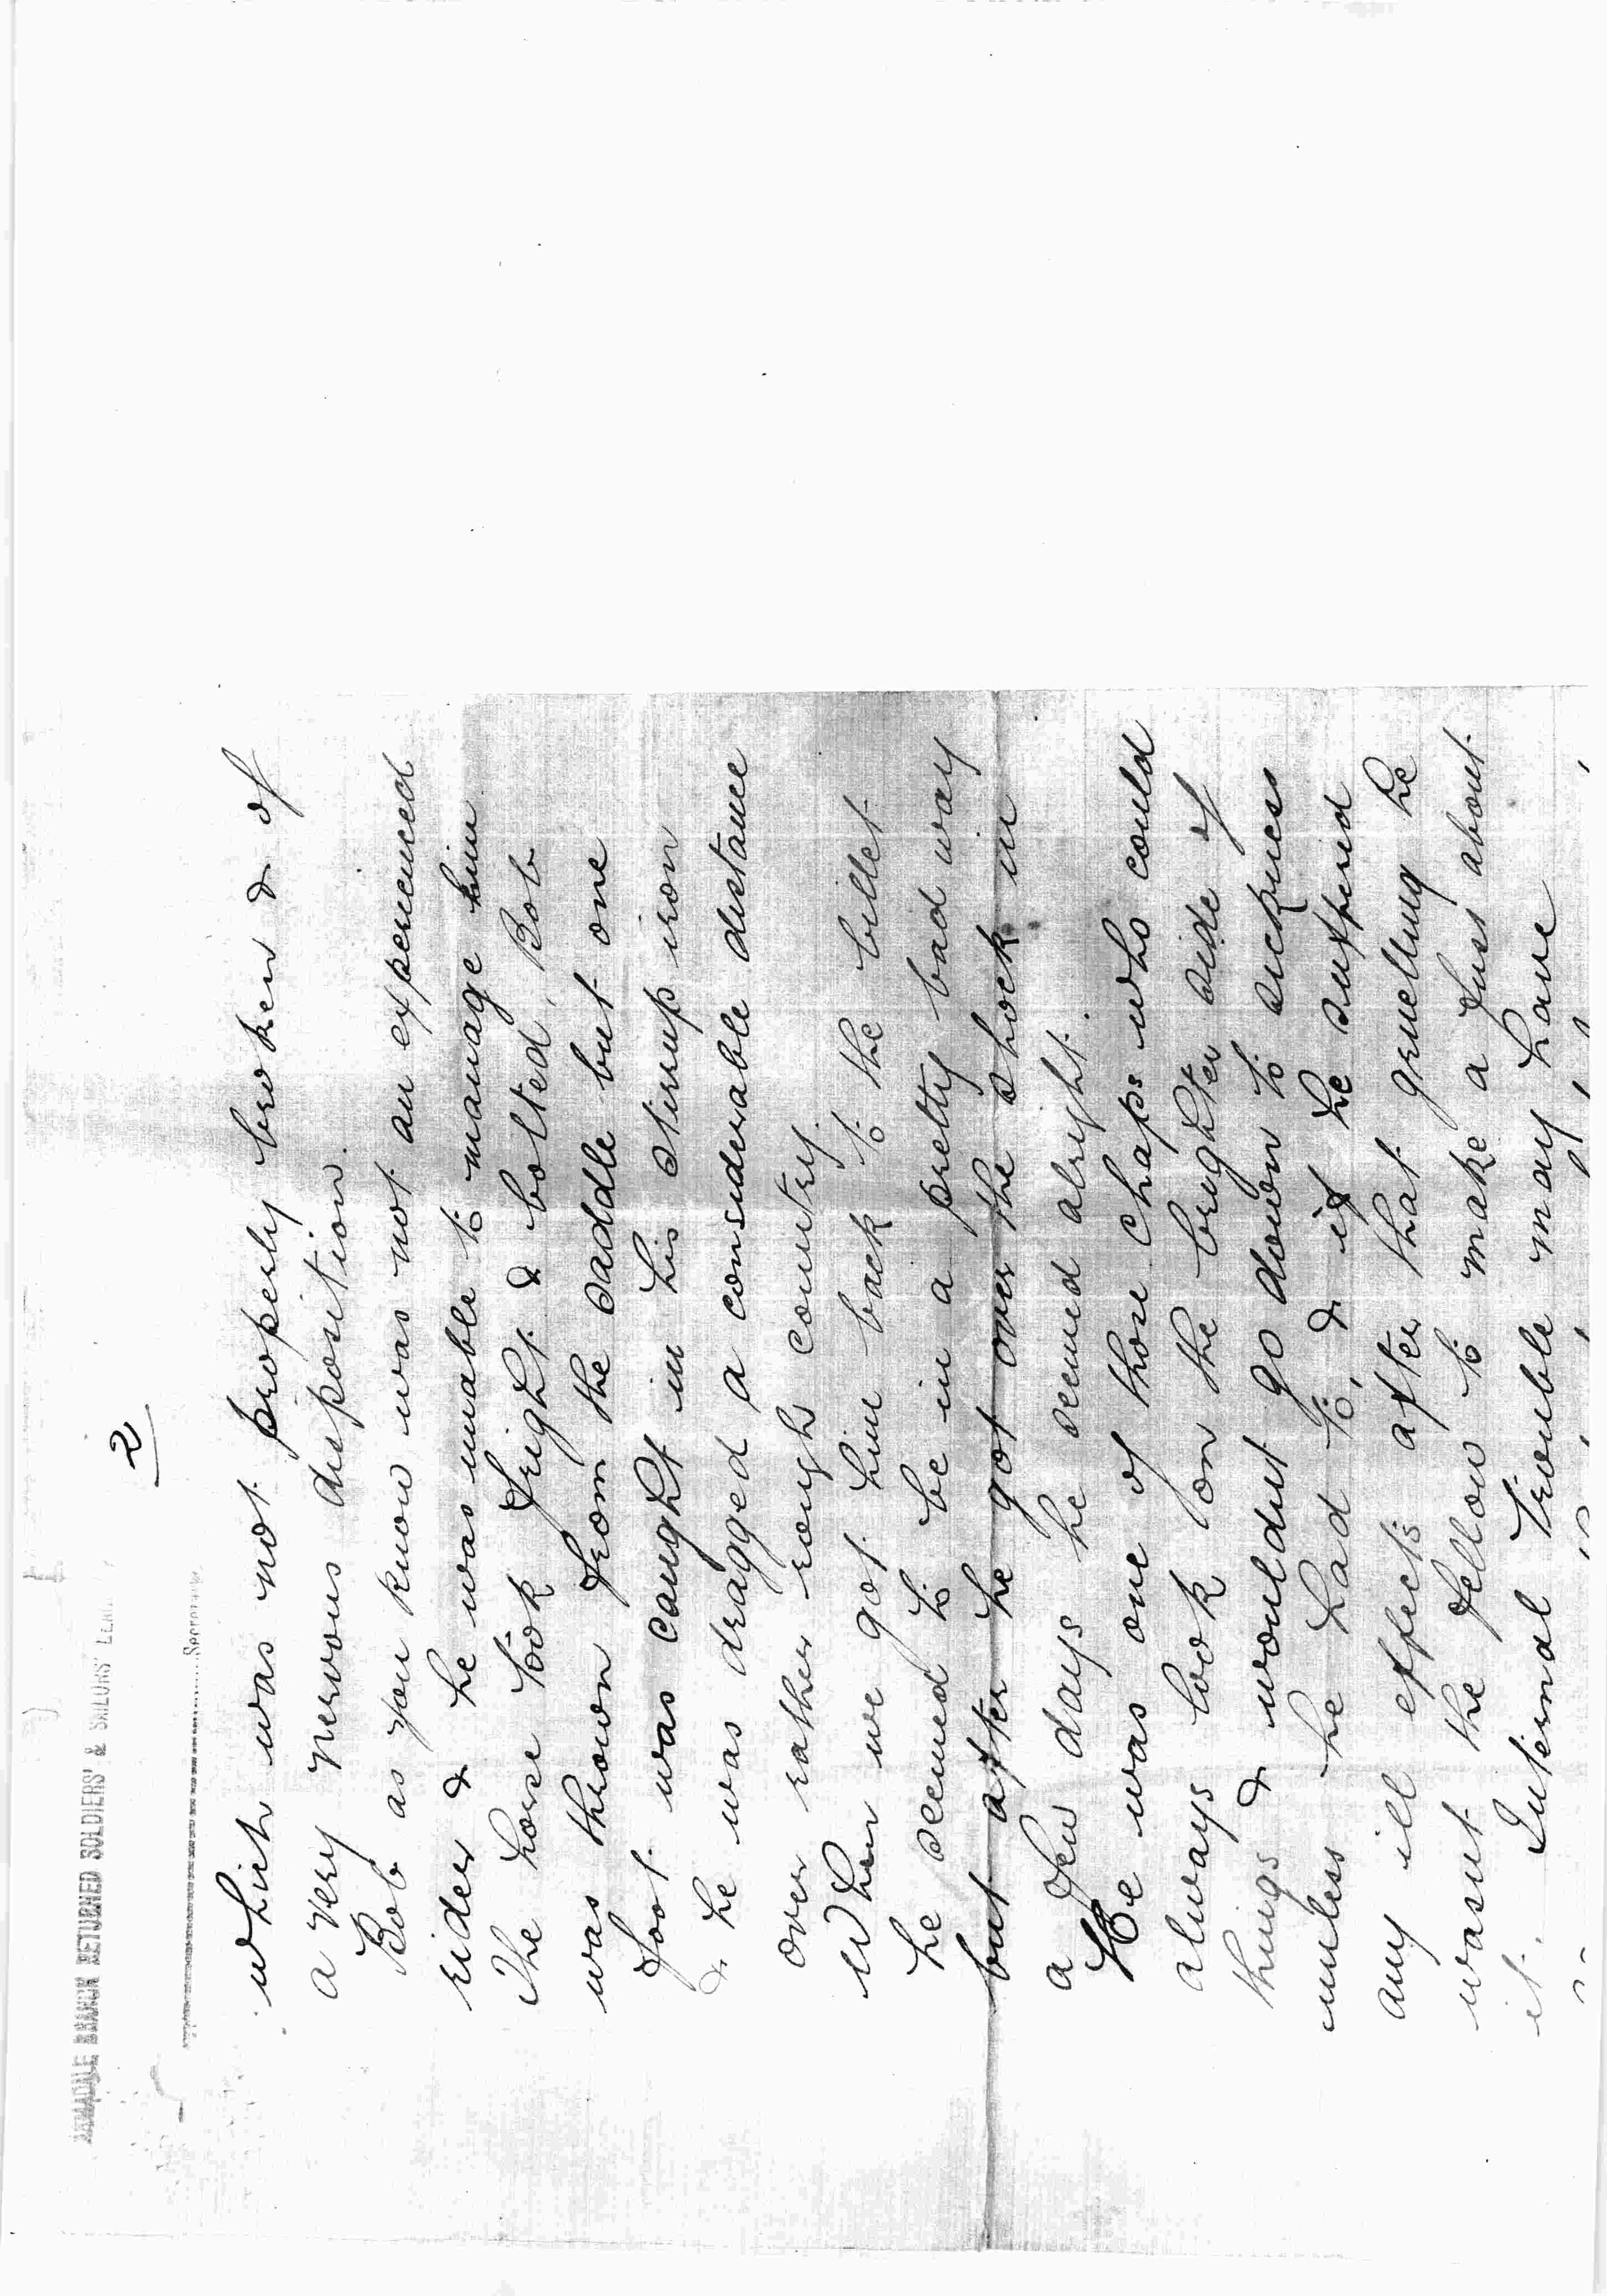 ARMADALE BRANCH RETURNED SOLDIERS' & SAILORS'
Secretary
2
which was not properly broken & of
a very nervous disposition.
Bob as you know was not an experienced
rider & he was unable to manage him
The horse took fright & bolted, Bob
was thrown from the saddle but one
foot was caught in his stirrup iron
& he was dragged a considerable distance
over rather rough country.
When we got him back to the billet
he seemed to be in a pretty bad way
but after he got over the shock in
a few days he seemed alright.
He was one of those chaps who could
always look on the brighter side of
things & wouldnt go down to sickness
unless he had to, & if he suffered
any ill effects after that gruelling he
wasnt the fellow to make a fuss about
it. Internal trouble may have